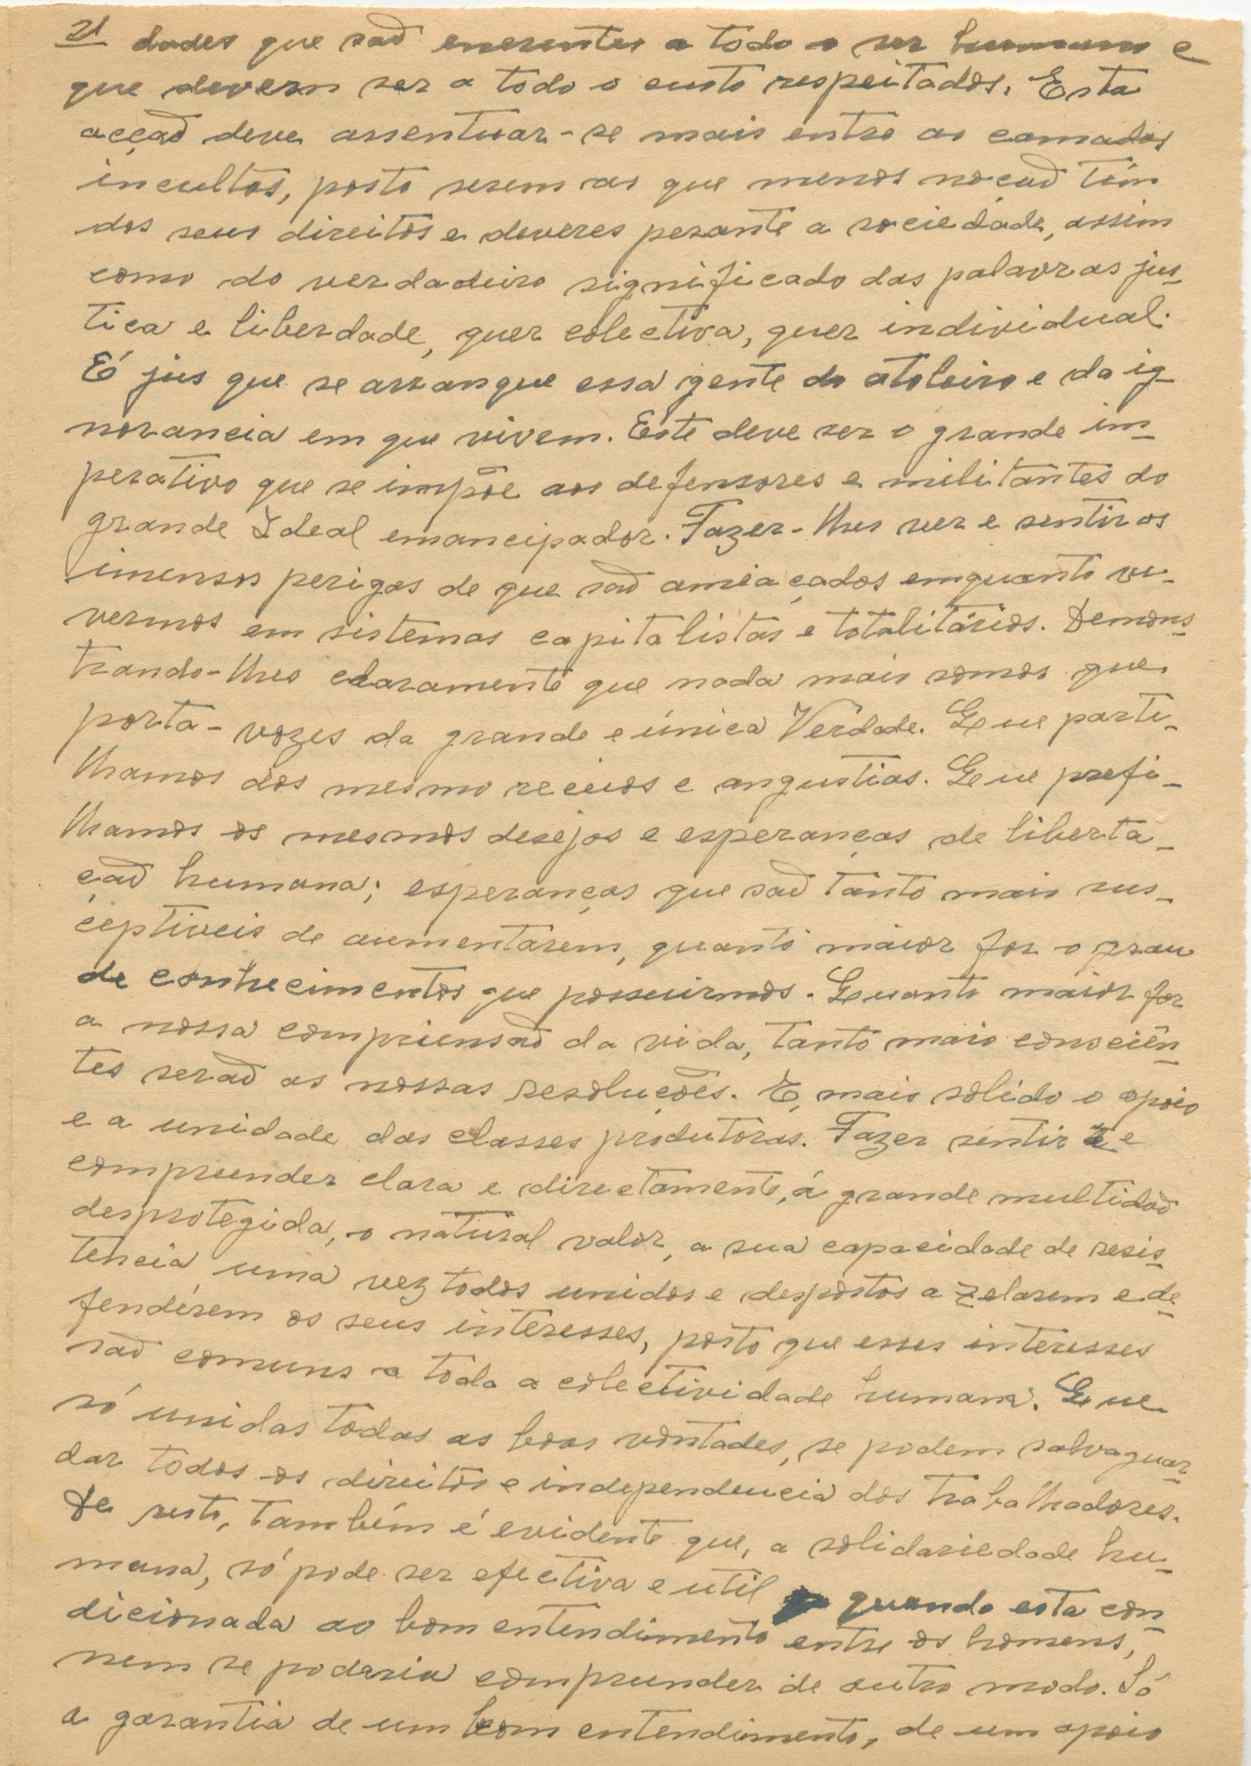 21 dades que são enerentes a todo o ser humano e
que devem ser a todo o custo respeitados. Esta
acção deve assentuar-se mais entre as camadas
incultas, posto serem as que menos noção têm
dos seus direitos e deveres perante a sociedade, assim
como do verdadeiro significado das palavras jus-
tiça e liberdade, quer colectiva, quer individual.
É jus que se arranque essa gente do atoleiro e da ig-
norancia em que vivem. Este deve ser o grande im-
perativo que se impõe aos defensores e militantes do
grande Ideal emancipador. Fazer-lhes ver e sentir os
imensos perigos de que são ameaçados emquanto vi-
vermos em sistemas capitalistas e totalitários. Demons-
trando-lhes claramente que nada mais somos que
porta-vozes da grande e única Verdade. Que parti-
lhamos dos mesmo receios e angustias. Que prefi-
lhamos os mesmos desejos e esperanças de liberta-
ção humana; esperanças que são tanto mais sus-
ceptiveis de aumentarem, quanto maior for o grau
de conhecimentos que possuirmos. Quanto maior for
a nossa compriensão da vida, tanto mais consciên-
tes serão as nossas resoluções. E, mais solido o apoio
e a unidade das classes produtoras. Fazer sentir e
compreender clara e directamente, á grande multidão
desprotegida, o natural valor, a sua capacidade de resis-
tencia uma vez todos unidos e despostos a zelarem e de-
fenderem os seus interesses, posto que esses interesses
são comuns a toda a colectividade humana. Que
só unidas todas as boas vontades, se podem salvaguar-
dar todos os direitos e independencia dos trabalhadores.
De resto, também é evidente que, a solidariedade hu-
mana, só pode ser efectiva e util quando esta con-
dicionada ao bom entendimento entre os homens,
nem se poderia compreender de outro modo. Só
a garantia de um bom entendimento, de um apoio